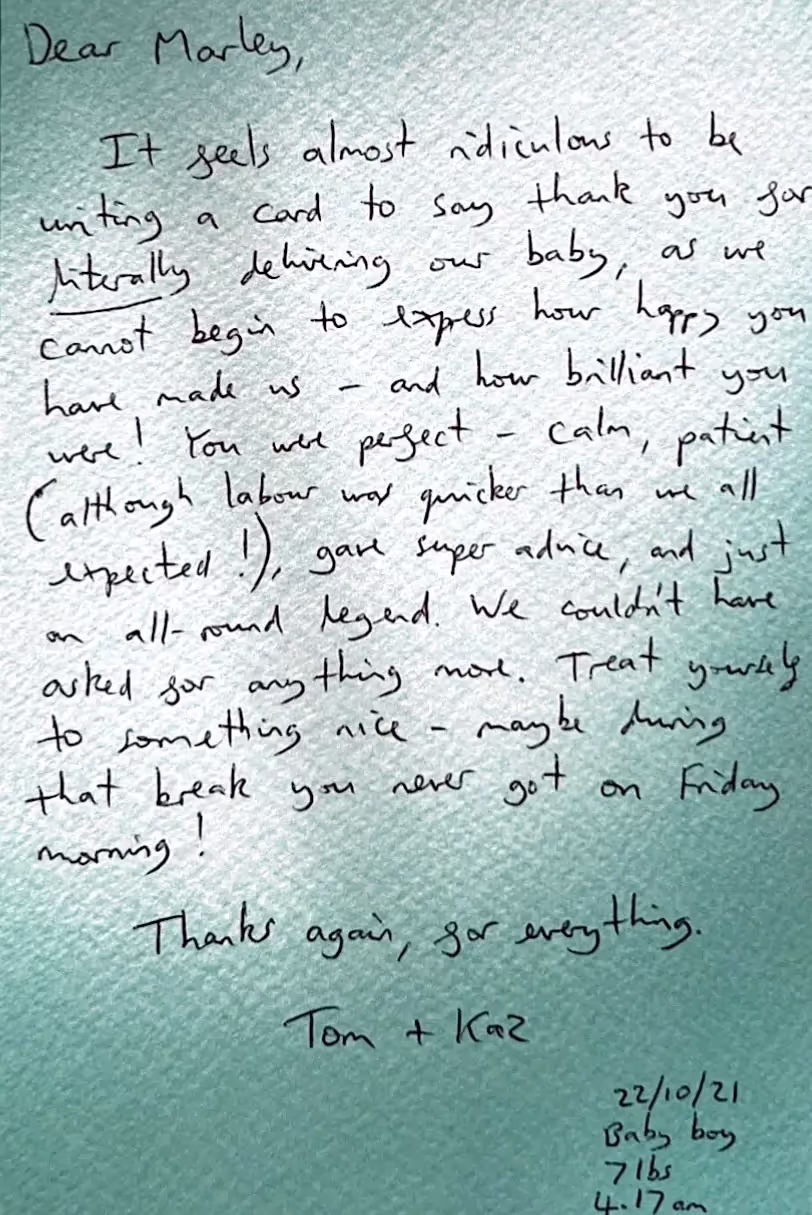 Dear Marley,
It feels almost ridiculous to be
writing a card to say thank you for
literally delivering our baby, as we
cannot begin to express how happy you
have made us – and how brilliant you
were! You were perfect – calm, patient
(although labour was quicker than we all
expected!), gave super advice, and just
an all-round legend. We couldn't have
asked for anything more. Treat yourself
to something nice – maybe during
that break you never got on Friday
morning!
Thanks again, for everything.
Tom + Kaz
22/10/21
Baby boy
7 lbs
4.17 am